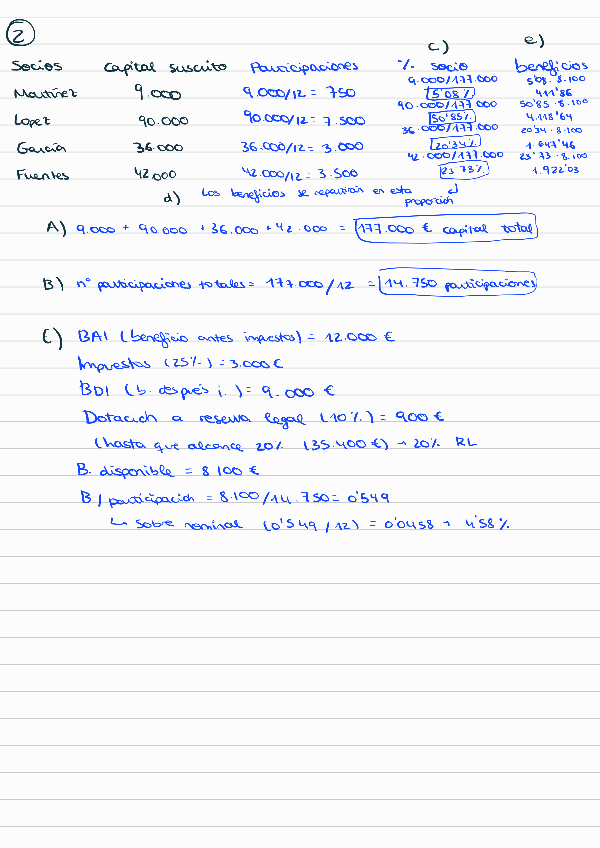 2
c) e)
Socios Capital suscrito Participaciones % socio beneficios
9.000/177.000 5'08 · 8.100
Martínez 9.000 9.000/12 = 750 5'08% 411'86
90.000/177.000 50'85 · 8.100
Lopez 90.000 90.000/12 = 7.500 50'85% 4.118'64
36.000/177.000 20'34 · 8.100
García 36.000 36.000/12 = 3.000 20'34% 1.647'46
42.000/177.000 23'73 · 8.100
Fuentes 42.000 42.000/12 = 3.500 23'73% 1.922'03
d) Los beneficios se repartirán en esta
proporción
A) 9.000 + 90.000 + 36.000 + 42.000 = 177.000 € capital total
B) nº participaciones totales = 177.000/12 = 14.750 participaciones
C) BAI (beneficio antes impuestos) = 12.000 €
Impuestos (25%) = 3.000 €
BDI (b. después i.) = 9.000 €
Dotación a reserva legal (10%) = 900 €
(hasta que alcance 20% (35.400 €) → 20% RL
B. disponible = 8.100 €
B/participación = 8.100/14.750 = 0'549
↳ Sobre nominal (0'549/12) = 0'0458 → 4'58%